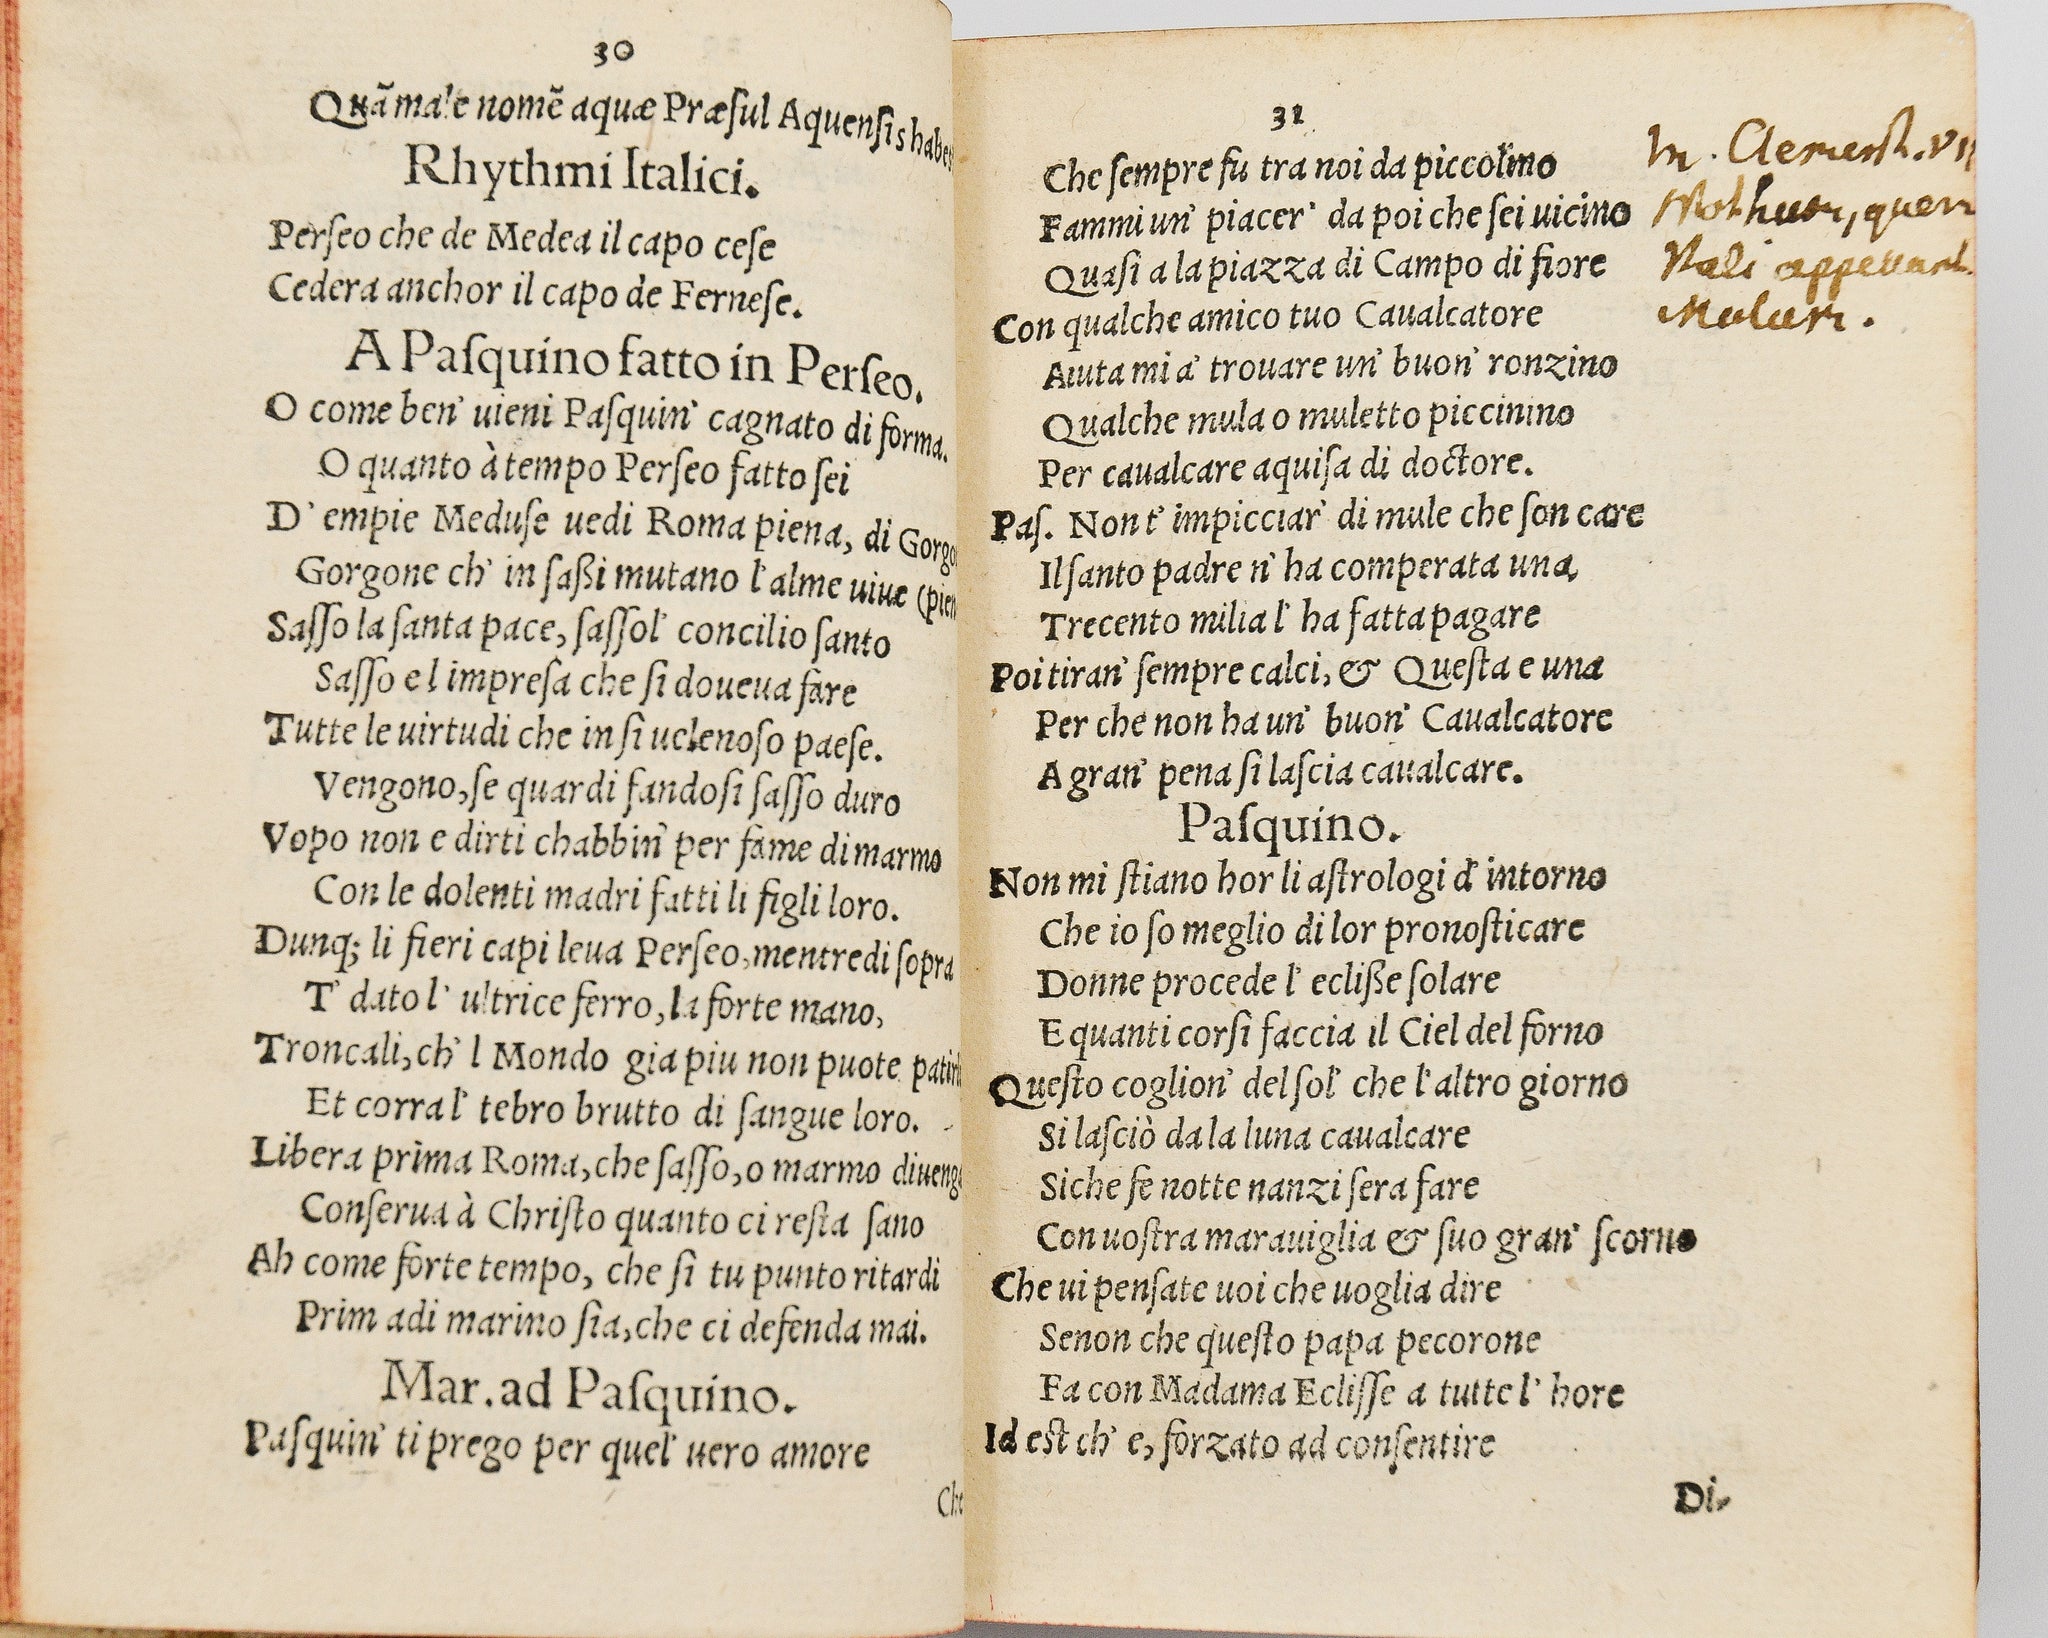 30
Quã male nomẽ aquæ Præſul Aquenſis habe
Rhythmi Italici.
Perſeo che de Medea il capo ceſe
Cedera anchor il capo de Ferneſe.
A Paſquino fatto in Perſeo.
O come ben' uieni Paſquin' cagnato di forma.
O quanto à tempo Perſeo fatto ſei
D' empie Meduſe uedi Roma piena, di Gorgo
Gorgone ch' in ſaßi mutano l' alme uiue (pien
Saſſo la ſanta pace, ſaſſo l' concilio ſanto
Saſſo e l impreſa che ſi doueua fare
Tutte le uirtudi che in ſi uelenoſo paeſe.
Vengono, ſe quardi fandoſi ſaſſo duro
Vopo non e dirti chabbin' per fame di marmo
Con le dolenti madri fatti li figli loro.
Dunq; li fieri capi leua Perſeo, mentre di ſopra
T' dato l' ultrice ferro, la forte mano,
Troncali, ch' l Mondo gia piu non puote patirli
Et corra l' tebro brutto di ſangue loro.
Libera prima Roma, che ſaſſo, o marmo diueng
Conſerua à Chriſto quanto ci reſta ſano
Ah come forte tempo, che ſi tu punto ritardi
Prim adi marino ſia, che ci defenda mai.
Mar. ad Paſquino.
Paſquin' ti prego per quel' uero amore
Che
31
Che ſempre fu tra noi da piccolino
Fammi un' piacer' da poi che ſei uicino
Quaſi a la piazza di Campo di fiore
Con qualche amico tuo Caualcatore
Aiuta mi a' trouare un' buon' ronzino
Qualche mula o muletto piccinino
Per caualcare aquiſa di doctore.
Paſ. Non t' impicciar' di mule che ſon care
Il ſanto padre n' ha comperata una,
Trecento milia l' ha fatta pagare
Poi tiran' ſempre calci, & Queſta e una
Per che non ha un' buon' Caualcatore
A gran' pena ſi laſcia caualcare.
Paſquino.
Non mi ſtiano hor li aſtrologi d' intorno
Che io ſo meglio di lor pronoſticare
Donne procede l' eclißſe ſolare
E quanti corſi faccia il Ciel del forno
Queſto coglion' del ſol' che l' altro giorno
Si laſciò da la luna caualcare
Siche fe notte nanzi ſera fare
Con uoſtra marauiglia & ſuo gran' ſcorno
Che ui penſate uoi che uoglia dire
Senon che queſto papa pecorone
Fa con Madama Ecliſſe a tutte l' hore
Id eſt ch' e, forzato ad conſentire
Di-
In. Clement. VII
Nothum, quem
Itali appellant
Mulum.